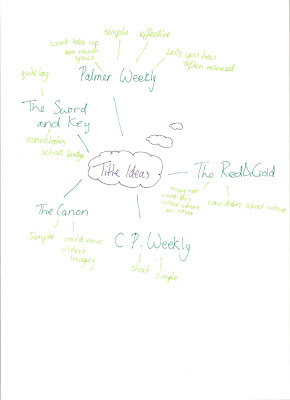 simple
effective
wont take up
too much
space
tells you how
often released
Palmer Weekly
quite long
The Sword
and Key
connotates
school badge
Title Ideas
The Red&Gold
may not
want this
colour theme
on cover
connotates school colours
The Canon
Simple
could cover
violent
imagery
C.P. Weekly
short
simple